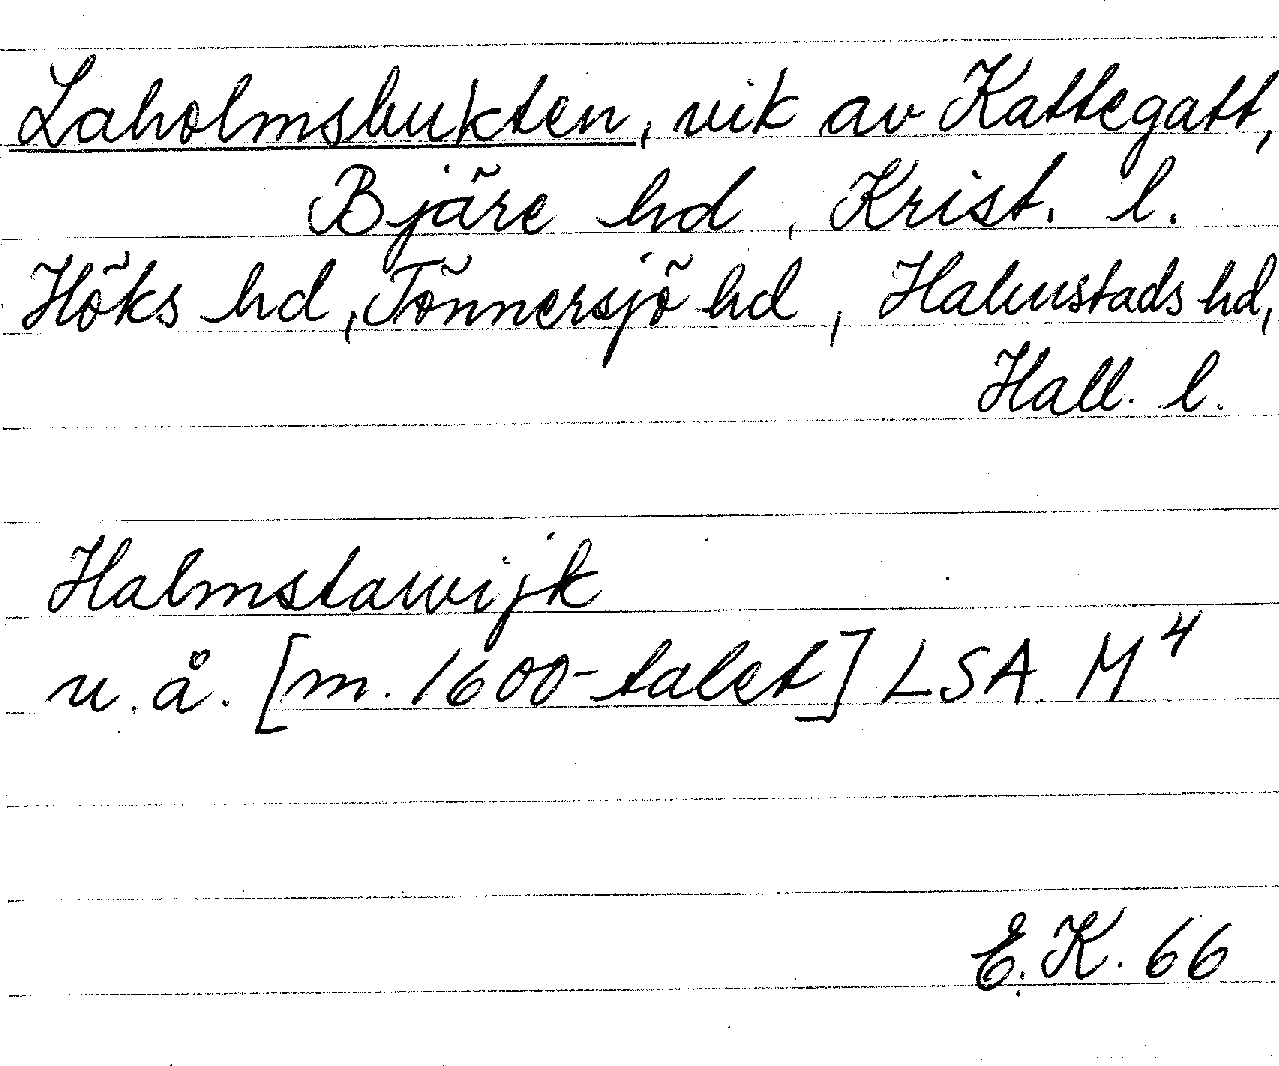 Laholmsbukten, vik av Kattegatt,
Bjäre hd, Krist. l.
Höks hd, Tönnersjö hd, Halmstads hd,
Hall. l.
Halmstawijk
u. å. [m. 1600-talet] LSA M⁴
E.K. 66